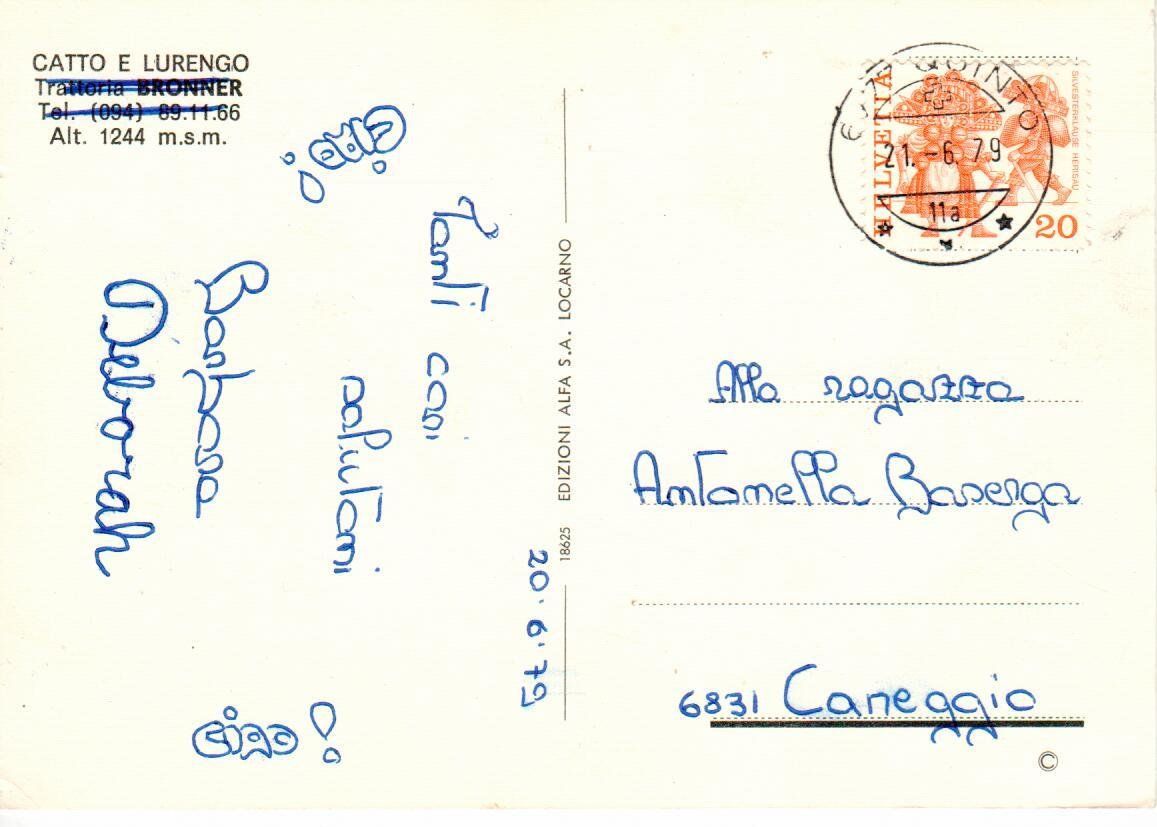 CATTO E LURENGO
Trattoria BRONNER
Tel. (094) 89.11.66
Alt. 1244 m.s.m.
20.6.79
Tanti cari
salutani
Barbara
Deborah
ciao!
ciao!
18625 EDIZIONI ALFA S.A. LOCARNO
QUINTO
21.-6.79
11a
HELVETIA
SILVESTERKLÄUSE HERISAU
20
Alla ragazza
Antonella Baserga
6831 Caneggio
©